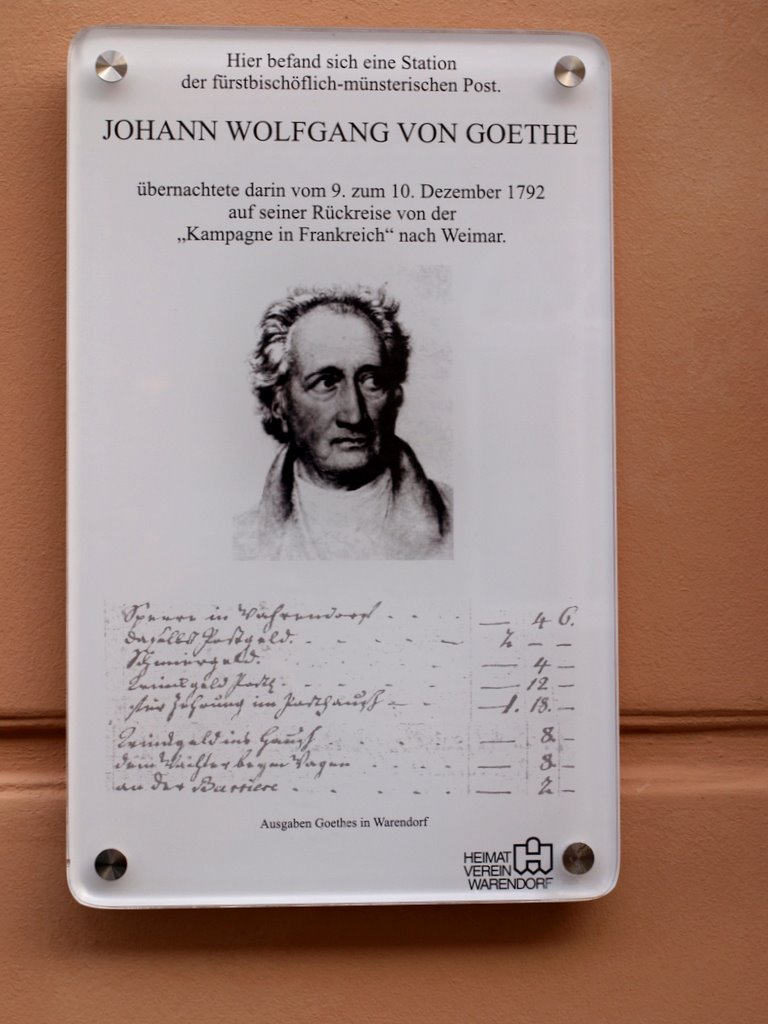 Hier befand sich eine Station
der fürstbischöflich-münsterischen Post.
JOHANN WOLFGANG VON GOETHE
übernachtete darin vom 9. zum 10. Dezember 1792
auf seiner Rückreise von der
„Kampagne in Frankreich“ nach Weimar.
Sperre in Wahrendorf . . . — 4 6.
daselbst Postgeld. . . . . — 2 — —
Schmiergeld. . . . . — 4 —
Trinkgeld Postill. . . . . — 12 —
für Zehrung im Posthause — . — 1. 18. —
Trinkgeld ins Hauß . . . — 8 —
dem Wächter beym Wagen . . . — 8 —
an der Barriere . . . . — 2 —
Ausgaben Goethes in Warendorf
HEIMAT
VEREIN
WARENDORF